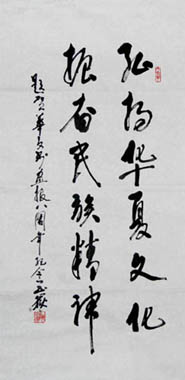 弘扬华夏文化
振奋民族精神
题贺华夏
报八周年纪念